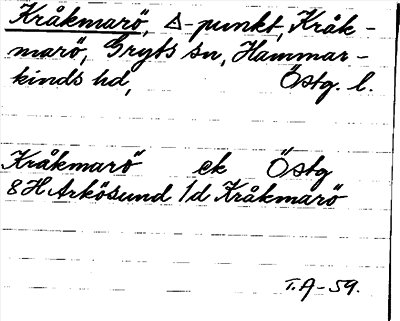 Kråkmarö, △-punkt, Kråk-
marö, Gryts sn, Hammar-
kinds hd, Östg. l.
Kråkmarö ek Östg
8H Arkösund 1d Kråkmarö
T.A-59.